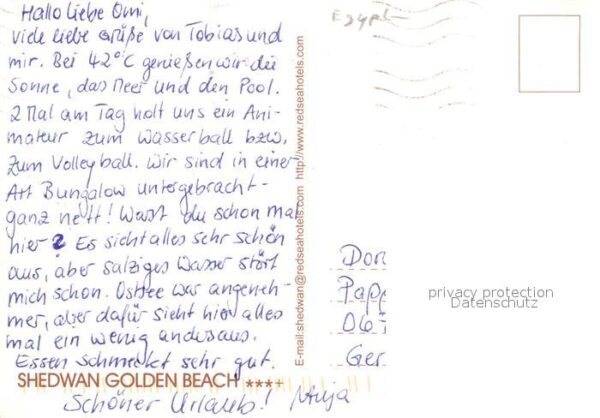 Hallo liebe Omi,
viele liebe Grüße von Tobias und
mir. Bei 42°C genießen wir die
Sonne, das Meer und den Pool.
2 Mal am Tag holt uns ein Ani-
mateur zum Wasserball bzw.
zum Volleyball. Wir sind in einer
Art Bungalow untergebracht -
ganz nett! Warst du schon mal
hier? Es sieht alles sehr schön
aus, aber salziges Wasser stört
mich schon. Ostsee war angeneh-
mer, aber dafür sieht hier alles
mal ein wenig anders aus.
Essen schmeckt sehr gut.
SHEDWAN GOLDEN BEACH ****
Schöner Urlaub! Anja
E-mail:shedwan@redseahotels.com http://www.redseahotels.com
Egypt
Dor
Papp
067
Ger
privacy protection
Datenschutz